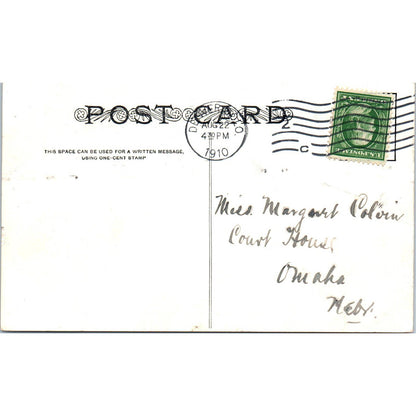 POST CARD
AUG 22
4 30 PM
1910
2
C
THIS SPACE CAN BE USED FOR A WRITTEN MESSAGE,
USING ONE-CENT STAMP
Miss. Margaret Colvin
Court House
Omaha
Nebr.